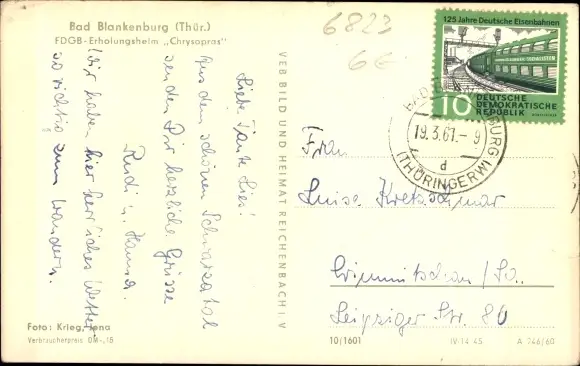 Bad Blankenburg (Thür.)
FDGB-Erholungsheim „Chrysopras"
6823
6G
125 Jahre Deutsche Eisenbahnen
10
DEUTSCHE
DEMOKRATISCHE
REPUBLIK
BAD BLANKENBURG
19.3.61.-9
d
(THÜRINGERW)
Liebe Tante Lies!
Aus dem schönen Schwarzatal
senden Dir herzliche Grüsse
Rudi u. Hanna.
Wir haben hier herrliches Wetter
so richtig zum Wandern.
VEB BILD UND HEIMAT REICHENBACH I. V
Frau
Luise Kretzschmar
Crimmitschau/Sa.
Leipziger Str. 80
Foto: Krieg, Jena
Verbraucherpreis DM -,15
10/1601
IV-14-45
A 246/60